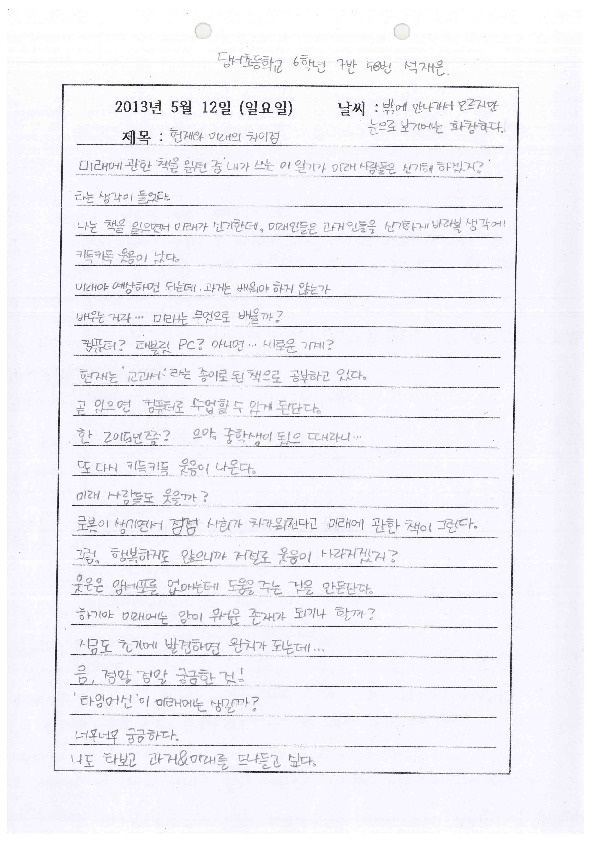 6학년 7반 석재은
2013년 5월 12일 (일요일) 날씨 : 밖에 안나가서 모르지만
눈으로 보기에는 화창하다.
제목 : 현재와 미래의 차이점
미래에 관한 책을 읽던 중 '내가 쓰는 이 일기가 미래 사람들은 신기해 하겠지?'
라는 생각이 들었다.
나는 책을 읽으면서 미래가 신기한데, 미래인들은 과거인들을 신기하게 바라볼 생각에
키득키득 웃음이 났다.
미래야 예상하면 되는데.. 과거는 배워야 하지 않는가
배우는 거라… 미래는 무엇으로 배울까?
컴퓨터? 태블릿 PC? 아니면… 새로운 기계?
현재는 '교과서'라는 종이로 된 책으로 공부하고 있다.
곧 있으면 컴퓨터로 수업할 수 있게 된단다.
한 2015년쯤? 으악, 중학생이 됬을 때라니…
또 다시 키득키득 웃음이 나온다.
미래 사람들도 웃을까?
로봇이 생기면서 점점 사회가 차가워진다고 미래에 관한 책이 그런다.
그럼, 행복하지도 않으니까 저절로 웃음이 사라지겠지?
웃음은 암세포를 없애는데 도움을 주는 것을 안믿는다.
하기야 미래에는 암이 존재가 되기나 할까?
지금도 초기에 발견하면 완치가 되는데…
음, 정말 정말 궁금한 것!
'타임머신'이 미래에는 생길까?
너무너무 궁금하다.
나도 타보고 과거&미래를 드나들고 싶다.